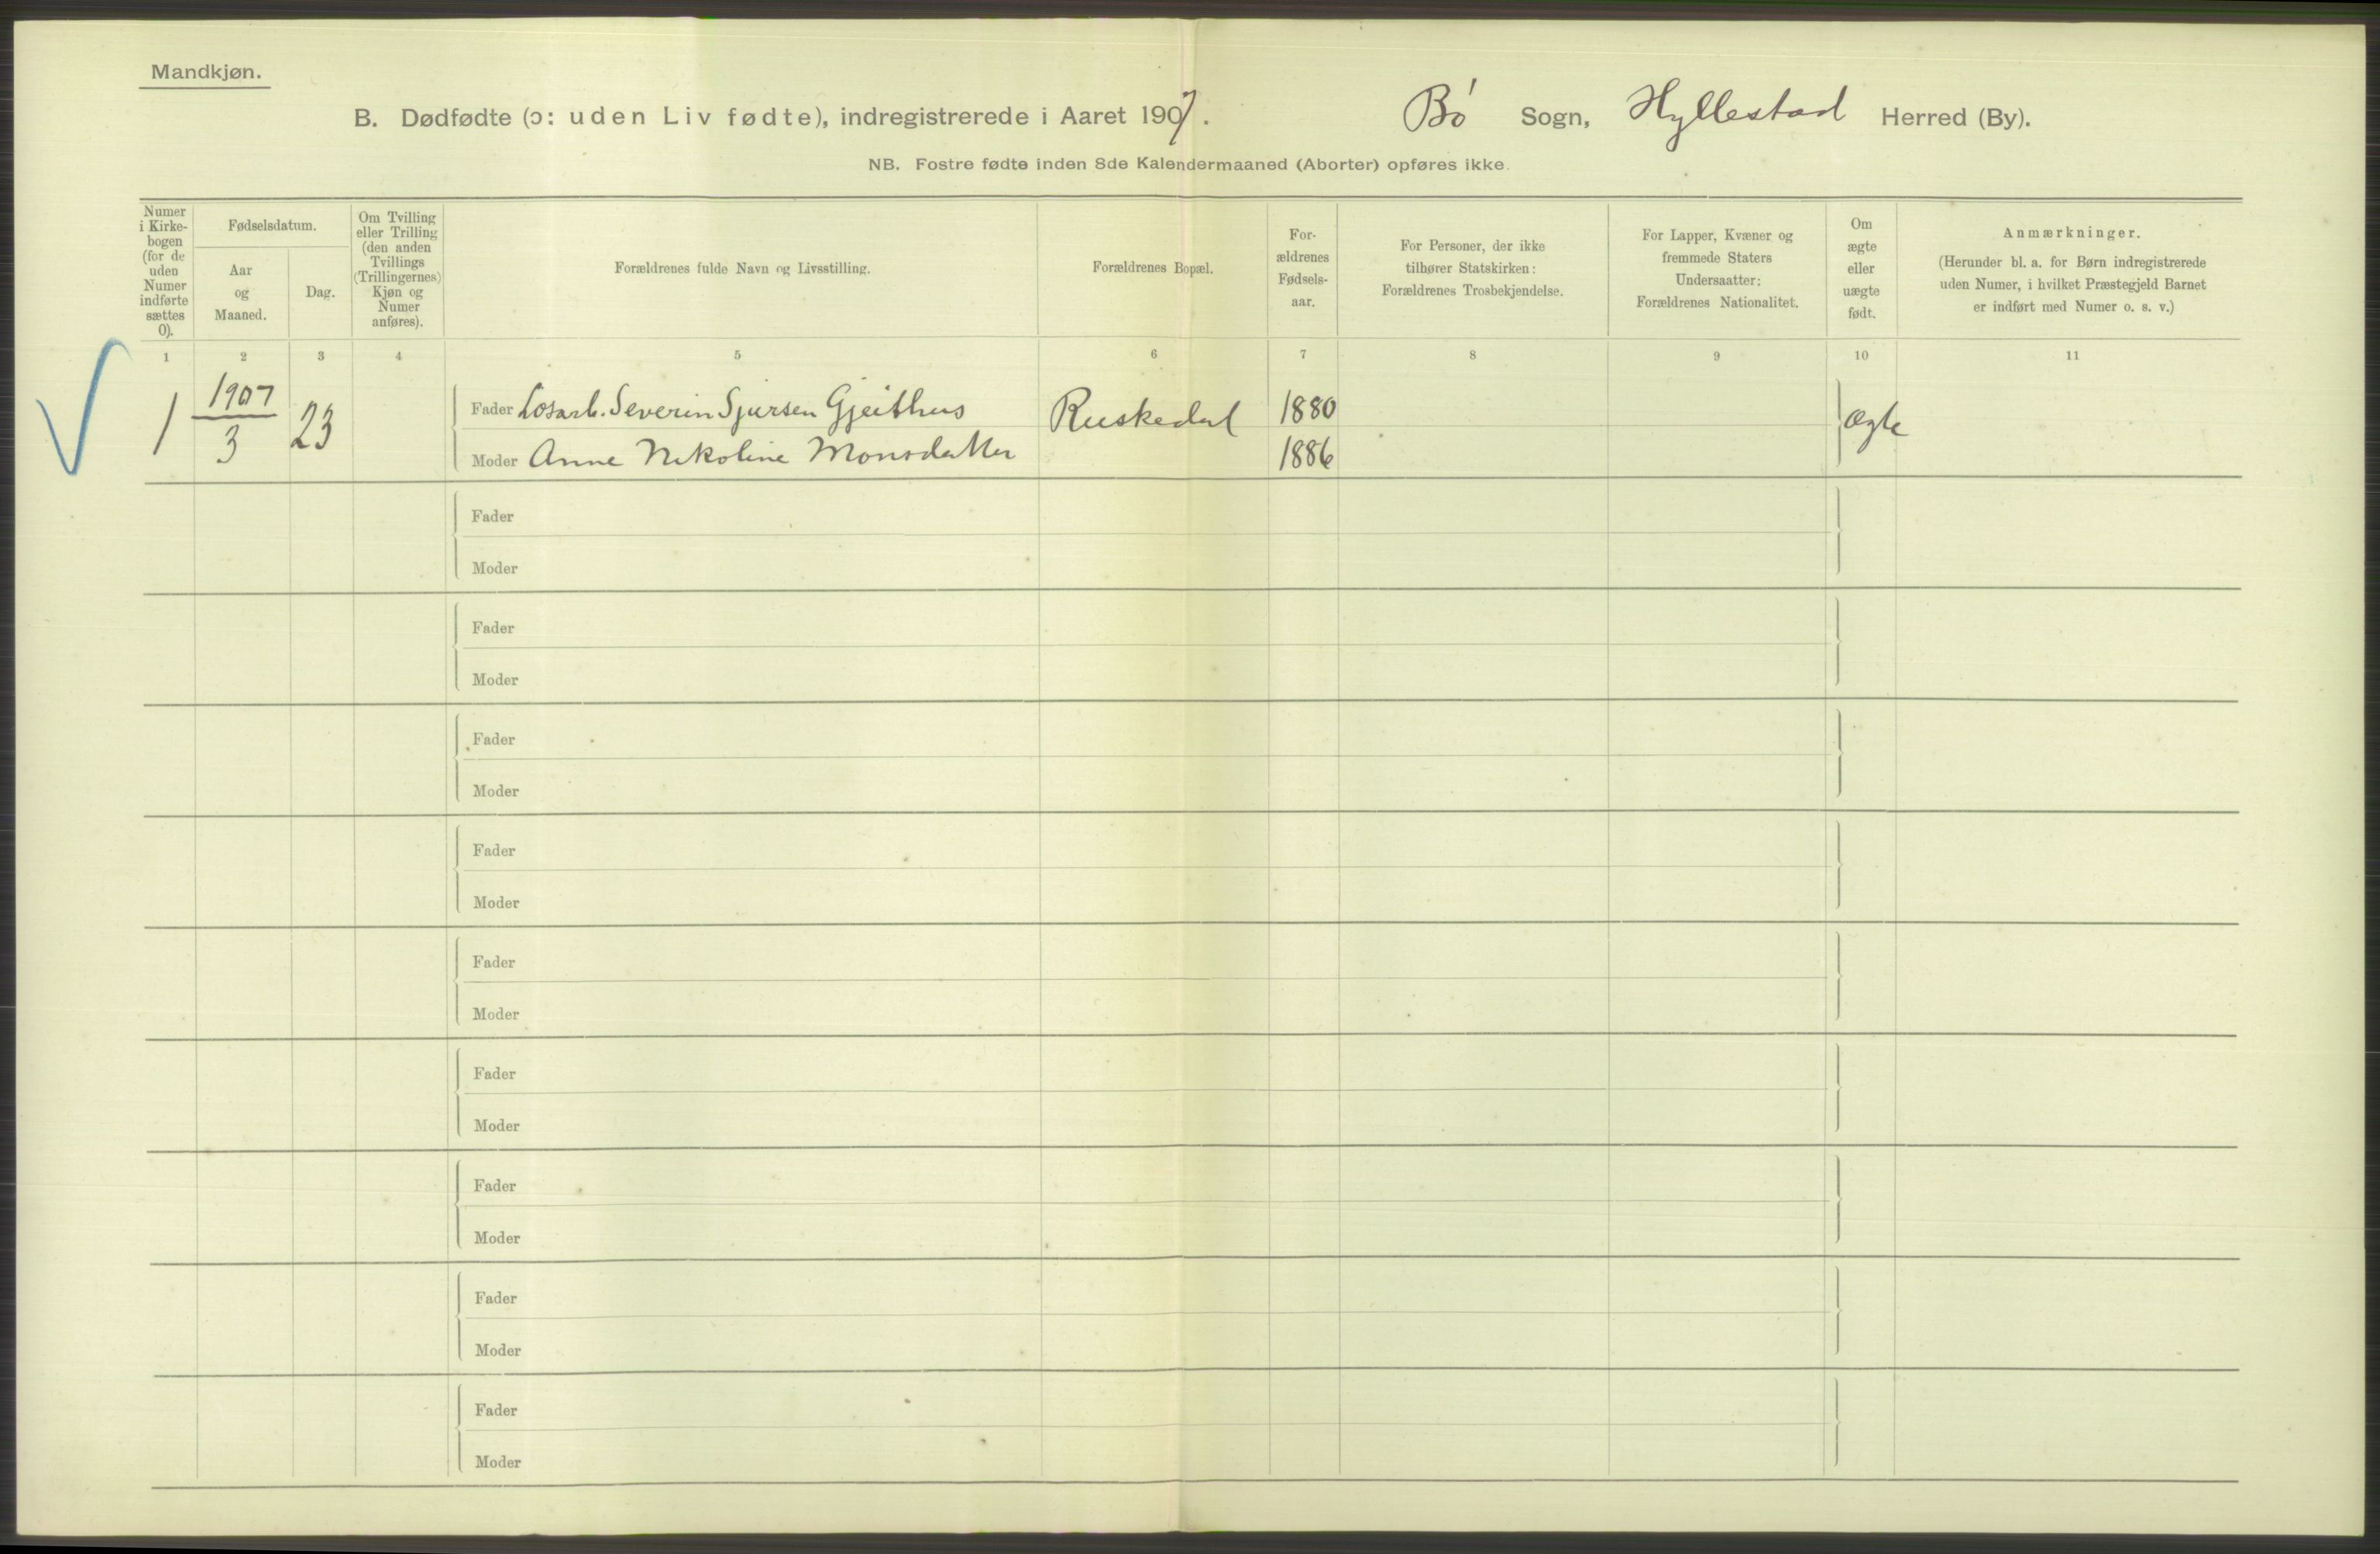 Mandkjøn.
B. Dødfødte (ɔ: uden Liv fødte), indregistrerede i Aaret 1907. Bø Sogn, Hyllestad Herred (By).
NB. Fostre fødte inden 8de Kalendermaaned (Aborter) opføres ikke.
Numer
i Kirke-
bogen
(for de
uden
Numer
indførte
sættes
0).
Fødselsdatum.
Aar
og
Maaned.
Dag.
Om Tvilling
eller Trilling
(den anden
Tvillings
(Trillingernes)
Kjøn og
Numer
anføres).
Forældrenes fulde Navn og Livsstilling.
Forældrenes Bopæl.
For-
ældrenes
Fødsels-
aar.
For Personer, der ikke
tilhører Statskirken:
Forældrenes Trosbekjendelse.
For Lapper, Kvæner og
fremmede Staters
Undersaatter:
Forældrenes Nationalitet.
Om
ægte
eller
uægte
født.
Anmærkninger.
(Herunder bl. a. for Børn indregistrerede
uden Numer, i hvilket Præstegjeld Barnet
er indført med Numer o. s. v.)
1 2 3 4 5 6 7 8 9 10 11
1 1907 3 23
Fader Losarb. Severin Sjursen Gjeithus Ruskedal 1880 ægte
Moder Anne Nikoline Monsdatter 1886
Fader
Moder
Fader
Moder
Fader
Moder
Fader
Moder
Fader
Moder
Fader
Moder
Fader
Moder
Fader
Moder
Fader
Moder